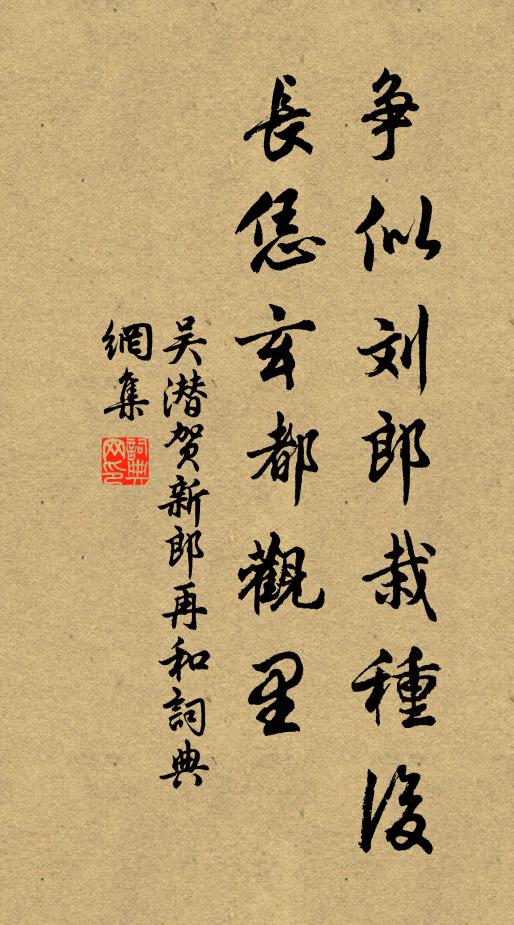 争似刘郎栽種後
長恁玄都觀里
吴潜贺新郎再和詞典
網集
詞典网印